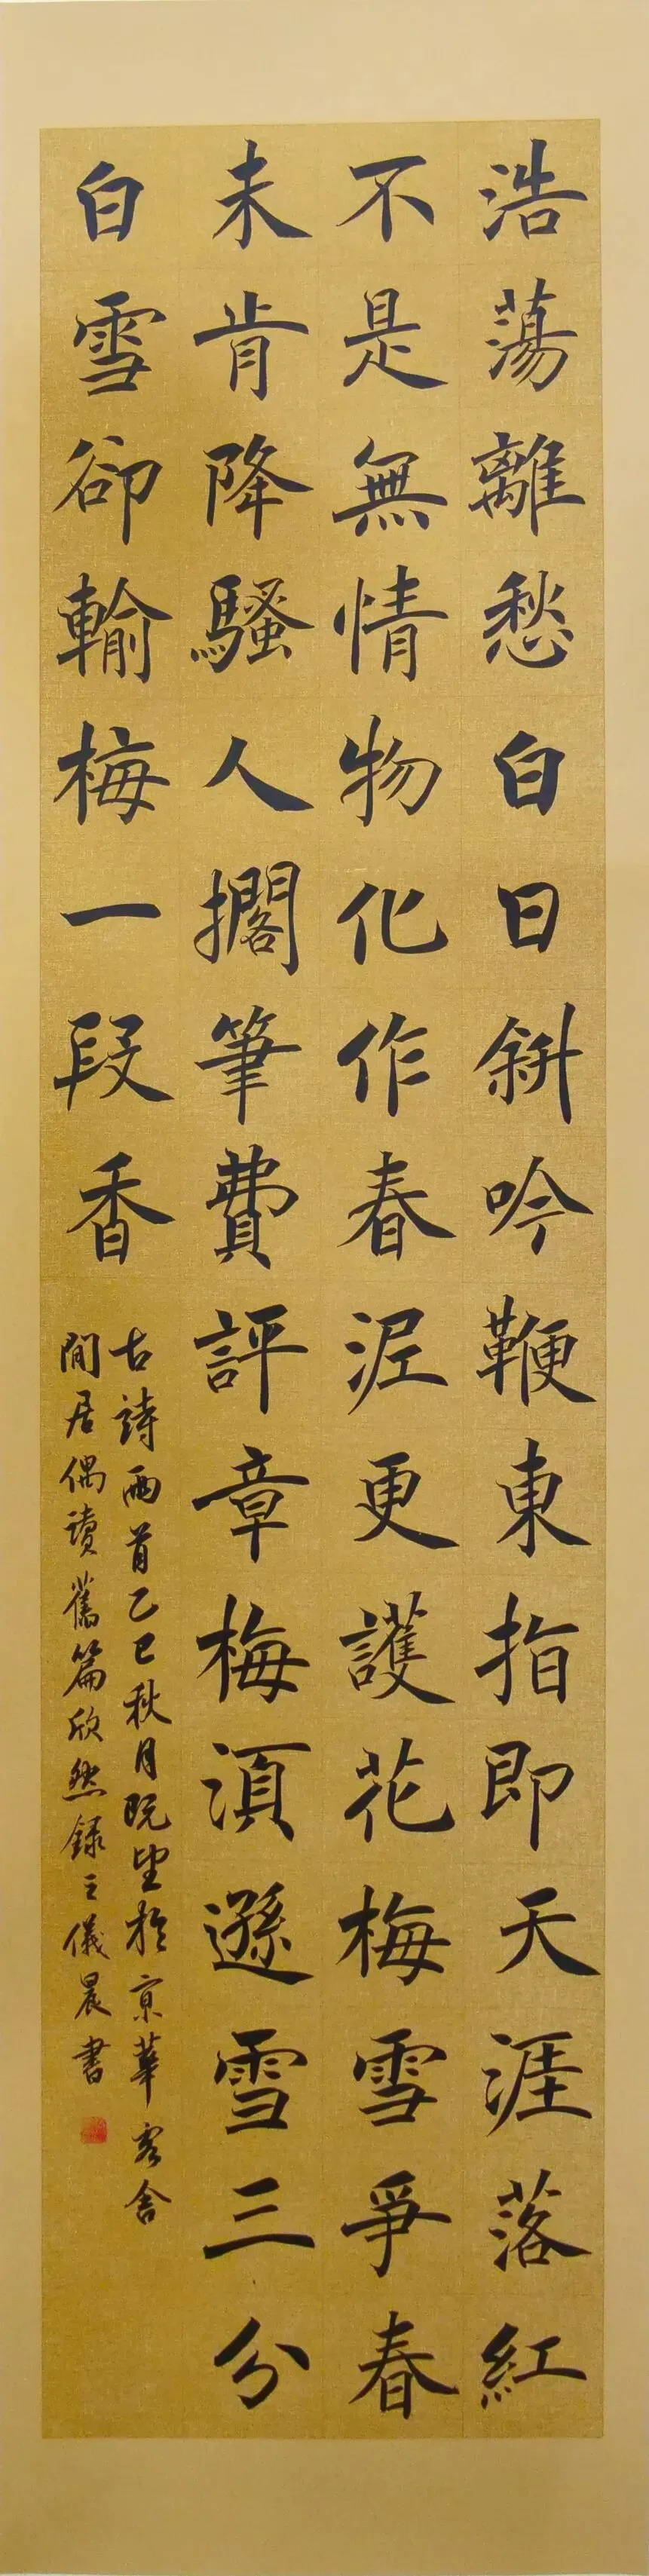 浩蕩離愁白日斜吟鞭東指即天涯落紅
不是無情物化作春泥更護花梅雪爭春
未肯降騷人擱筆費評章梅須遜雪三分
白雪卻輸梅一段香
古詩兩首乙巳秋月既望於京華客舍
閒居偶讀舊篇欣然錄之儀晨書